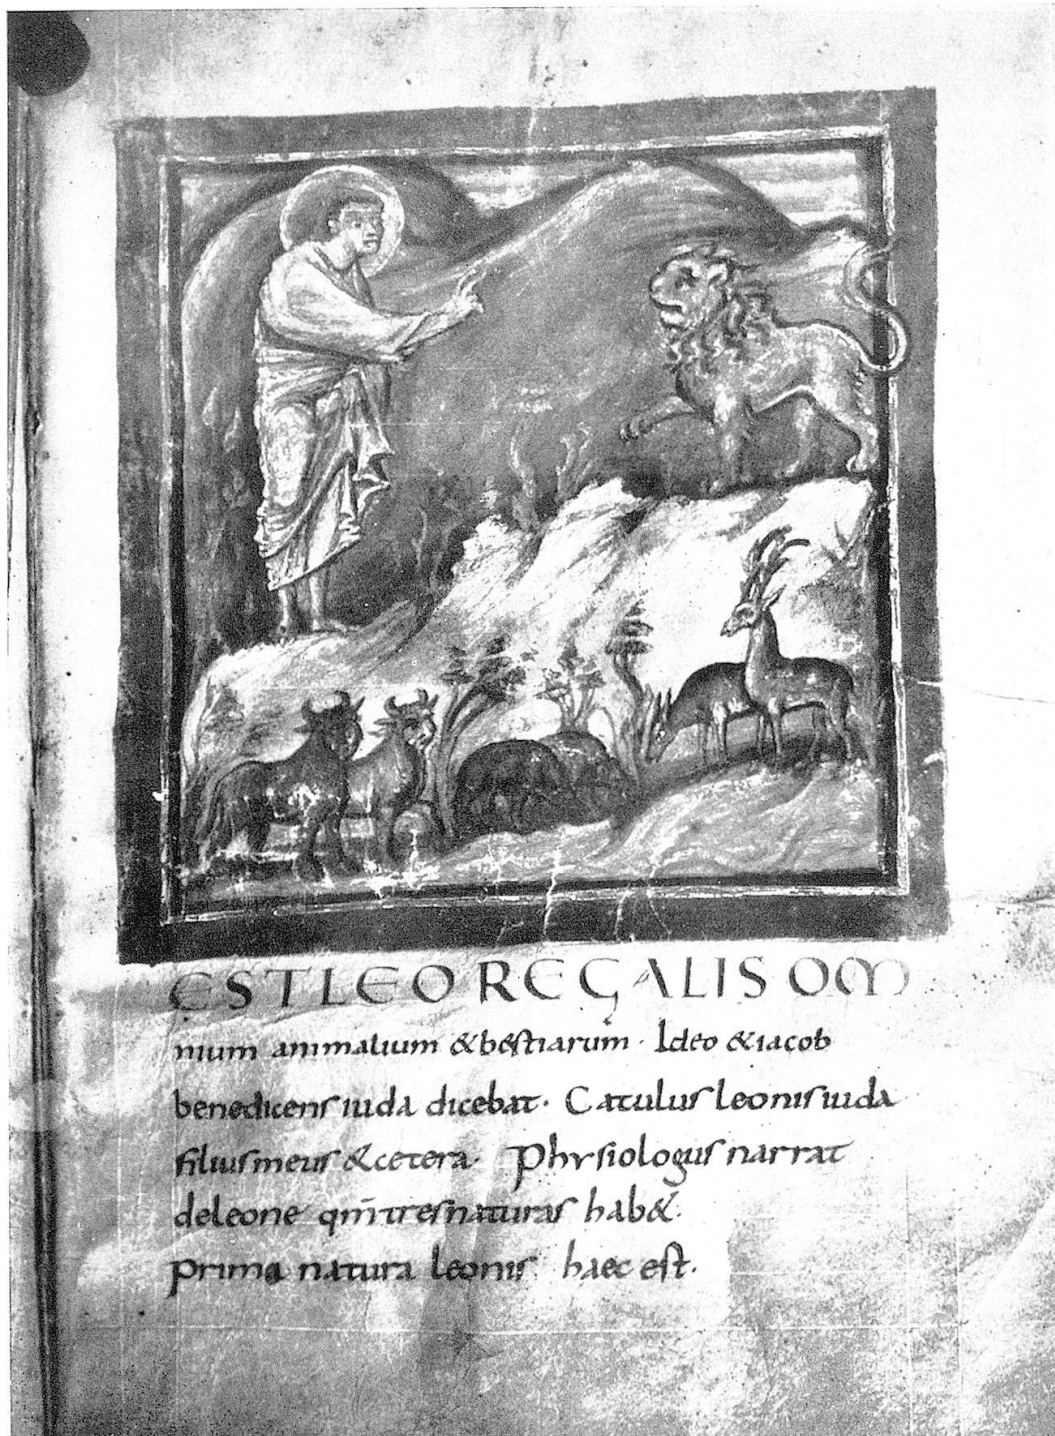 EST LEO REGALIS OM
nium animalium & bestiarum · Ideo & iacob
benedicens iuda dicebat · Catulus leonis iuda
filius meus & cetera · Physiologus narrat
de leone qm̄ tres naturas hab& ·
Prima natura leonis haec est ·